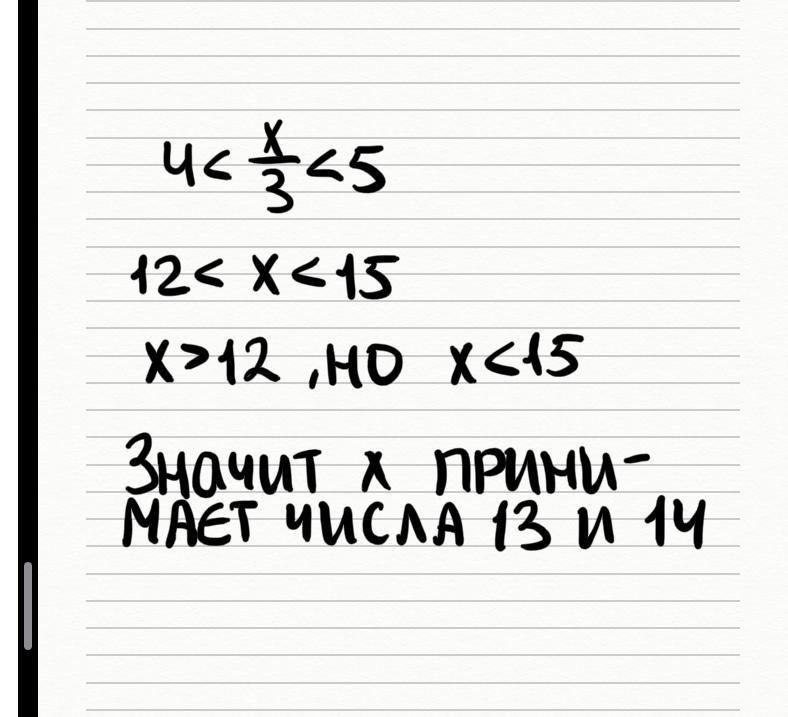 4 < x/3 < 5
12 < x < 15
x > 12 , но x < 15
Значит x прини-
мает числа 13 и 14